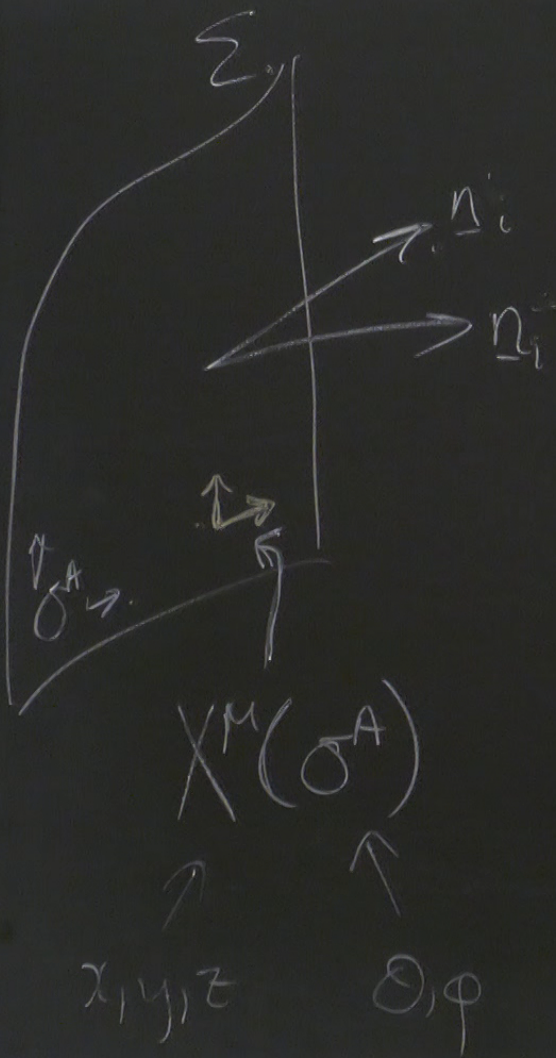 Σ
n_i
n_i
σ^A
X^μ(σ^A)
x, y, z θ, φ